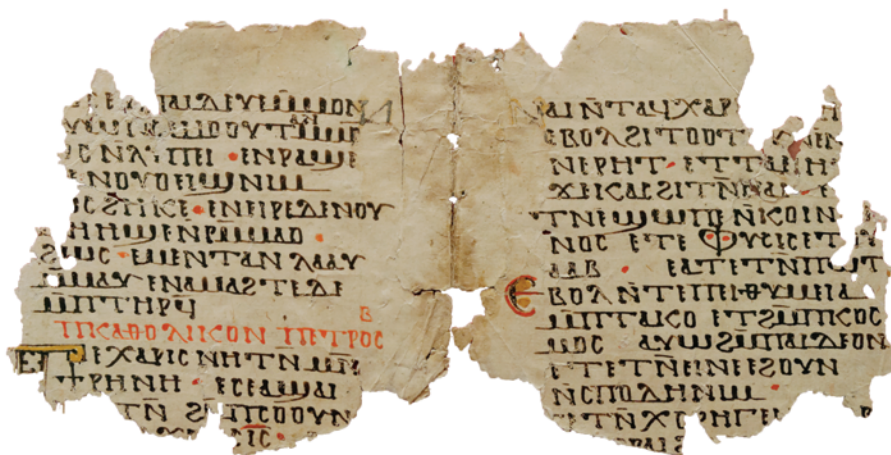 ⲡⲁⲓⲇⲉⲩⲉⲙⲙⲟⲛ
ⲙⲟⲟⲩⲧⲙⲙⲟ
ⲥⲛⲗⲩⲡⲉⲓ · ⲉⲛⲣⲁϣⲉ
ⲉⲛⲟⲩⲟⲉⲓϣⲛⲓⲙ
ⲥϩⲏⲕⲉ · ⲉⲛⲉⲓⲣⲉⲇⲉⲛⲟⲩ
ⲙⲏⲏϣⲉⲛⲣⲙⲙⲁⲟ ·
ϩⲱⲥ · ⲉⲙⲉⲛⲧⲁⲛ ⲗⲁⲁⲩ
ⲙⲙⲁⲩ ⲉⲛⲁⲙⲁϩⲧⲉⲇⲉ
ⲙⲡⲧⲏⲣϥ
ⲃ
ⲡⲕⲁⲑⲟⲗⲓⲕⲟⲛ ⲡⲉⲧⲣⲟⲥ
ⲧⲉⲭⲁⲣⲓⲥ ⲛⲏⲧⲛ ⲙⲛ̄
ϯⲣⲏⲛⲏ · ⲉⲥⲉⲁϣⲁⲓ
ⲧⲛ̄ ϩⲙ̄ⲡⲥⲟⲟⲩⲛ
ⲓⲥ ·
ⲁⲓⲛ̄ⲧⲁϥⲭⲁⲣ
ⲉⲃⲟⲗϩⲓⲧⲟⲟⲧ
ⲛⲉⲣⲏⲧ · ⲉⲧⲧⲁⲓⲏ
ϫⲉⲕⲁⲥϩⲓⲧⲛ̄ⲛⲁⲓ · ⲉ
ⲧⲛⲉϣⲱⲡⲉⲛ̄ⲕⲟⲓⲛ
ⲛⲟⲥ ⲉⲧⲉⲫⲩⲥⲓⲥⲉⲧ
ⲁⲁⲃ · ⲉⲁⲧⲉⲧⲛ̄ⲡⲱⲧ
ⲉⲃⲟⲗⲛ̄ⲧⲉⲡⲉⲓⲑⲩⲙⲉⲓⲁ
ⲙⲡⲧⲁⲕⲟ ⲉⲧϩⲙ̄ⲡⲕⲟⲥ
ⲙⲟⲥ ⲁⲩⲱϩⲙ̄ⲡⲁⲓⲇⲉⲟⲛ
ⲉⲧⲉⲧⲛ̄ⲉⲓⲛⲉⲉϩⲟⲩⲛ
ⲛ̄ⲥⲡⲟⲩⲇⲏⲛⲓⲙ ·
ⲉⲧⲛ̄ⲭⲟⲣⲏⲅⲉⲓ